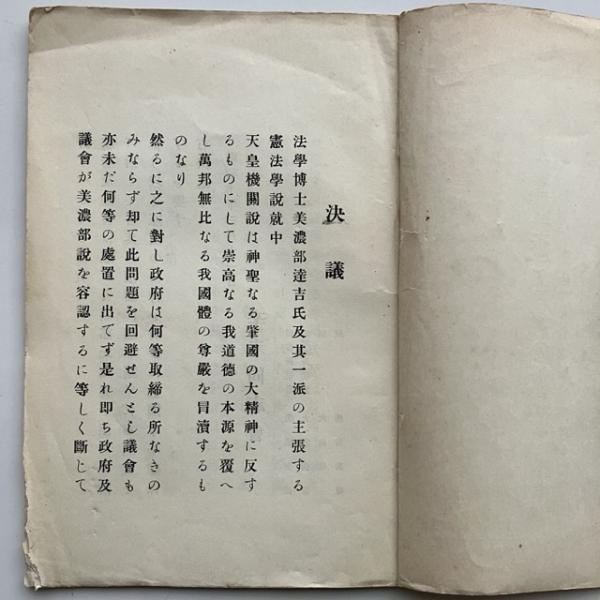 決議
法學博士美濃部達吉氏及其一派の主張する
憲法學說就中
天皇機關說は神聖なる肇國の大精神に反す
るものにして崇高なる我道德の本源を覆へ
し萬邦無比なる我國體の尊嚴を冒瀆するも
のなり
然るに之に對し政府は何等取締る所なきの
みならず却て此問題を回避せんとし議會も
亦未だ何等の處置に出てず是れ卽ち政府及
議會が美濃部說を容認するに等しく斷じて